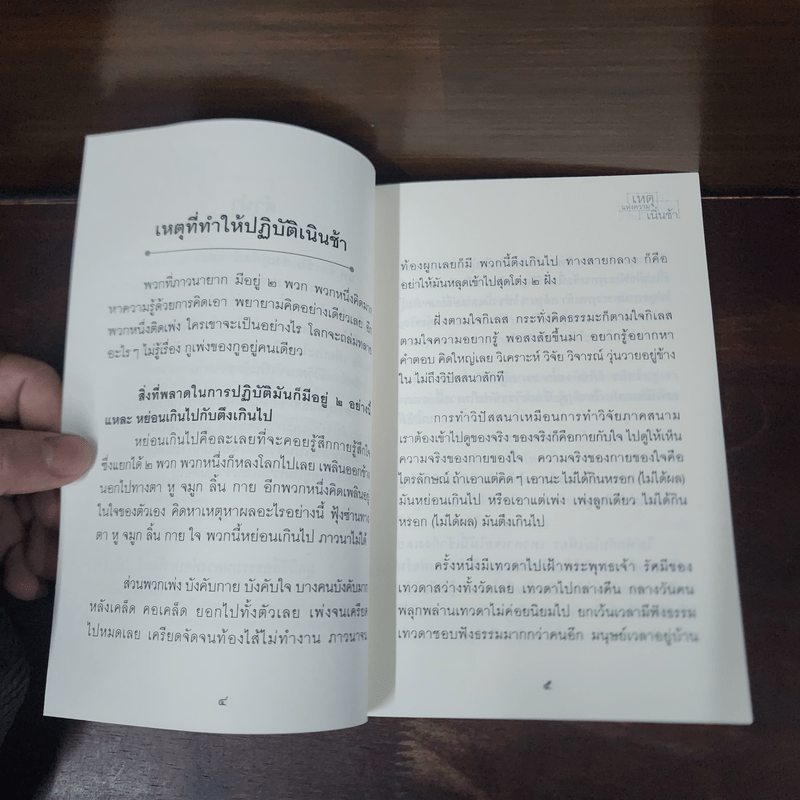 เหตุที่ทำให้ปฏิบัติเนินช้า
พวกที่ภาวนายาก มีอยู่ ๒ พวก พวกหนึ่งคิดมาก
หาความรู้ด้วยการคิดเอา พยายามคิดอย่างเดียวเลย อีก
พวกหนึ่งติดเพ่ง ใครเขาจะเป็นอย่างไร โลกจะถล่มทลาย
อะไร ๆ ไม่รู้เรื่อง กูเพ่งของกูอยู่คนเดียว
สิ่งที่พลาดในการปฏิบัติมันก็มีอยู่ ๒ อย่างนี้
แหละ หย่อนเกินไปกับตึงเกินไป
หย่อนเกินไปคือละเลยที่จะคอยรู้สึกกายรู้สึกใจ
ซึ่งแยกได้ ๒ พวก พวกหนึ่งก็หลงโลกไปเลย เพลินออกข้าง
นอกไปทางตา หู จมูก ลิ้น กาย อีกพวกหนึ่งคิดเพลินอยู่
ในใจของตัวเอง คิดหาเหตุหาผลอะไรอย่างนี้ ฟุ้งซ่านทาง
ตา หู จมูก ลิ้น กาย ใจ พวกนี้หย่อนเกินไป ภาวนาไม่ได้
ส่วนพวกเพ่ง บังคับกาย บังคับใจ บางคนบังคับมาก
หลังเคล็ด คอเคล็ด ยอกไปทั้งตัวเลย เพ่งจนเครียด
ไปหมดเลย เครียดจัดจนท้องไส้ไม่ทำงาน ภาวนาจน
๔
เหตุ
แห่งความ
เนินช้า
ท้องผูกเลยก็มี พวกนี้ตึงเกินไป ทางสายกลาง ก็คือ
อย่าให้มันหลุดเข้าไปสุดโต่ง ๒ ฝั่ง
ฝั่งตามใจกิเลส กระทั่งคิดธรรมะก็ตามใจกิเลส
ตามใจความอยากรู้ พอสงสัยขึ้นมา อยากรู้อยากหา
คำตอบ คิดใหญ่เลย วิเคราะห์ วิจัย วิจารณ์ วุ่นวายอยู่ข้าง
ใน ไม่ถึงวิปัสสนาสักที
การทำวิปัสสนาเหมือนการทำวิจัยภาคสนาม
เราต้องเข้าไปดูของจริง ของจริงก็คือกายกับใจ ไปดูให้เห็น
ความจริงของกายของใจ ความจริงของกายของใจคือ
ไตรลักษณ์ ถ้าเอาแต่คิด ๆ เอานะ ไม่ได้กินหรอก (ไม่ได้ผล)
มันหย่อนเกินไป หรือเอาแต่เพ่ง เพ่งลูกเดียว ไม่ได้กิน
หรอก (ไม่ได้ผล) มันตึงเกินไป
ครั้งหนึ่งมีเทวดาไปเฝ้าพระพุทธเจ้า รัศมีของ
เทวดาสว่างทั้งวัดเลย เทวดาไปกลางคืน กลางวันคน
พลุกพล่านเทวดาไม่ค่อยนิยมไป ยกเว้นเวลามีฟังธรรม
เทวดาชอบฟังธรรมมากกว่าคนอีก มนุษย์เวลาอยู่บ้าน
๕